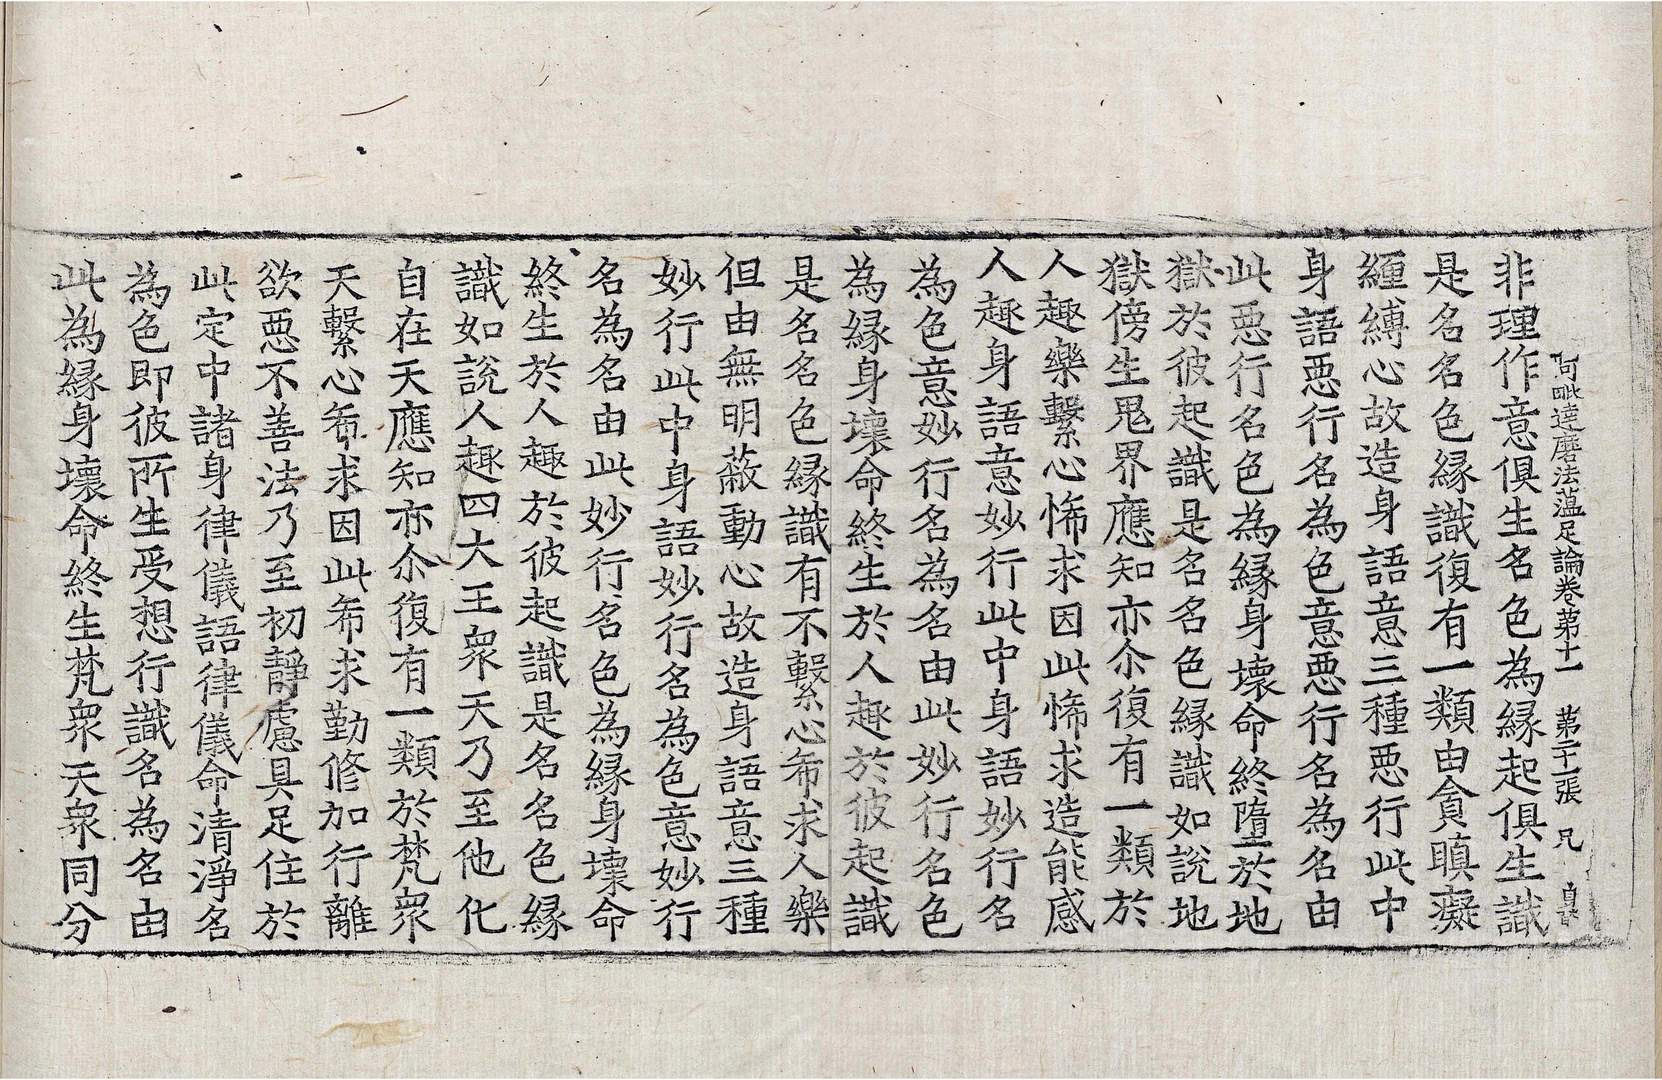 阿毗達磨法蘊足論卷第十一　第二十二張　兄
非理作意俱生名色為緣起俱生識
是名名色緣識復有一類由貪瞋癡
纏縛心故造身語意三種惡行此中
身語惡行名為色意惡行名為名由
此惡行名色為緣身壞命終墮於地
獄於彼起識是名名色緣識如說地
獄傍生鬼界應知亦尒復有一類於
人趣樂繫心悕求因此悕求造能感
人趣身語意妙行此中身語妙行名
為色意妙行名為名由此妙行名色
為緣身壞命終生於人趣於彼起識
是名名色緣識有不繫心希求人樂
但由無明蔽動心故造身語意三種
妙行此中身語妙行名為色意妙行
名為名由此妙行名色為緣身壞命
終生於人趣於彼起識是名名色緣
識如說人趣四大王眾天乃至他化
自在天應知亦尒復有一類於梵眾
天繫心希求因此希求勤修加行離
欲惡不善法乃至初靜慮具足住於
此定中諸身律儀語律儀命清淨名
為色即彼所生受想行識名為名由
此為緣身壞命終生梵眾天眾同分